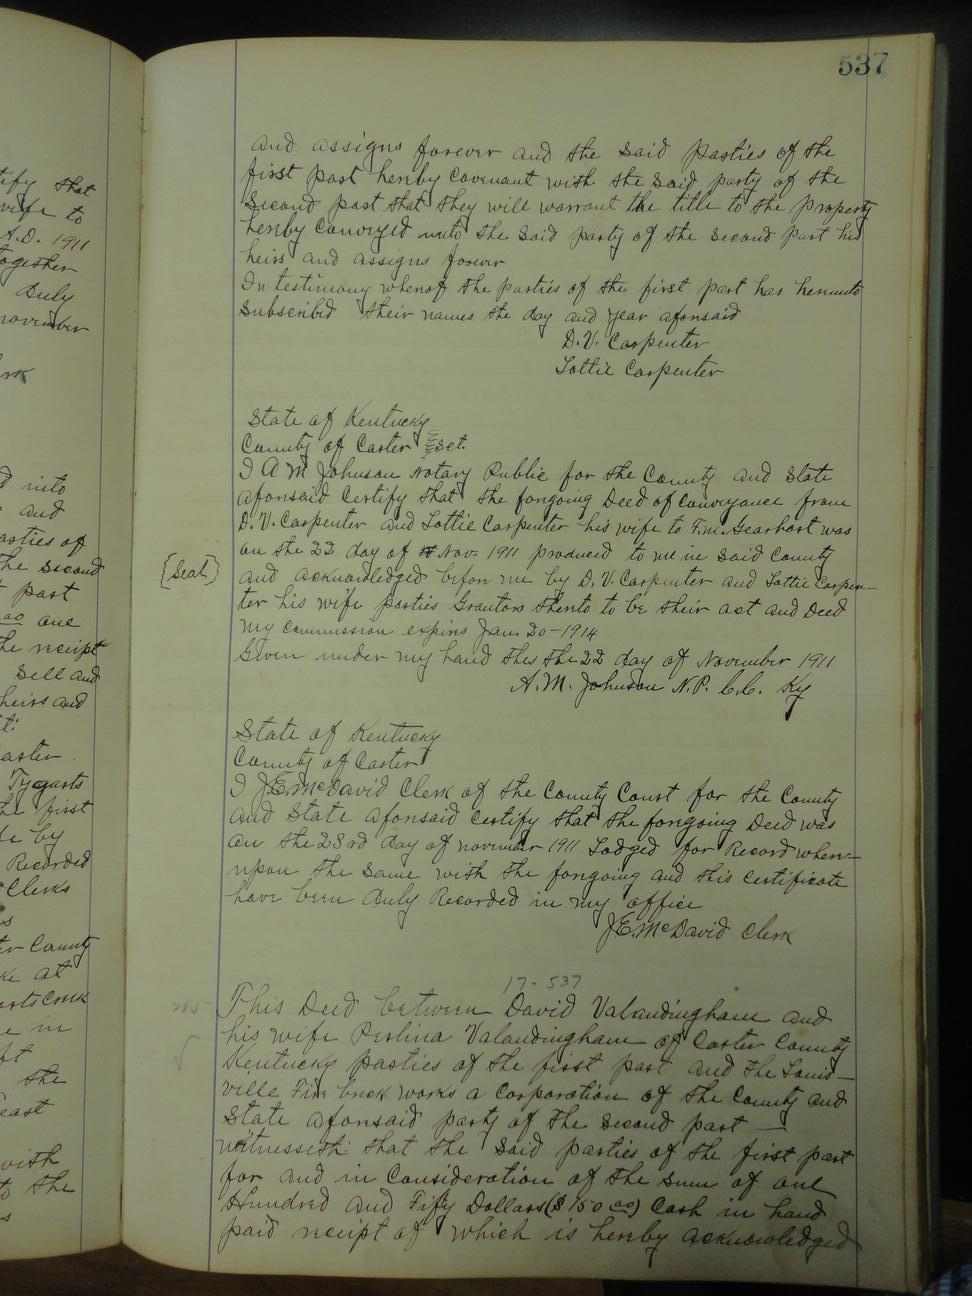 tify that
wife to
A.D. 1911
together
Duly
november
rk
d into
and
arties of
the second
part
00 one
he receipt
Sell and
heirs and
t:
arter
Tygarts
he first
de by
Recorded
Clerks
s
ter County
ke at
arts Creek
e in
ft
the
east
with
to the
s
537
and assigns forever and the said parties of the
first part hereby covenant with the said party of the
Second part that they will warrant the title to the property
hereby conveyed unto the said party of the second part his
heirs and assigns forever
In testimony whereof the parties of the first part has hereunto
Subscribed their names the day and year aforesaid
D.V. Carpenter
Lottie Carpenter
State of Kentucky
County of Carter Sct.
I A M Johnson Notary Public for the County and State
aforesaid certify that the foregoing Deed of conveyance from
D.V. Carpenter and Lottie Carpenter his wife to F.M. Gearhart was
on the 22 day of Nov. 1911 produced to me in said County
{Seal}
and acknowledged before me by D.V. Carpenter and Lottie Carpen-
ter his wife parties Grantors thereto to be their act and Deed
my commission expires Jan. 20-1914
Given under my hand this the 22 day of November 1911
A.M. Johnson N.P. C.C. Ky
State of Kentucky
County of Carter
I J.E. McDavid Clerk of the County Court for the County
and State aforesaid certify that the foregoing Deed was
on the 23rd day of november 1911 Lodged for Record where-
upon the same with the foregoing and this certificate
have been Duly Recorded in my office
J.E. McDavid Clerk
17-537
This Deed between David Valandingham and
his wife Perlina Valandingham of Carter County
Kentucky parties of the first part and The Louis-
ville Fire brick works a corporation of the County and
State aforesaid party of the second part —
witnesseth that the said parties of the first part
for and in consideration of the sum of one
Hundred and Fifty Dollars ($150 00) Cash in hand
paid receipt of which is hereby acknowledged